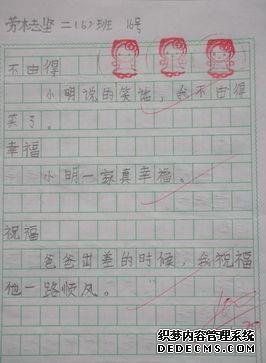 劳木志坚 二(6)班 16号
不由得
小明说的笑话,我不由得
笑了。
幸福
小明一家真幸福。
祝福
爸爸出差的时候,我祝福
他一路顺风。
织梦内容管理系统
DEDECMS.COM